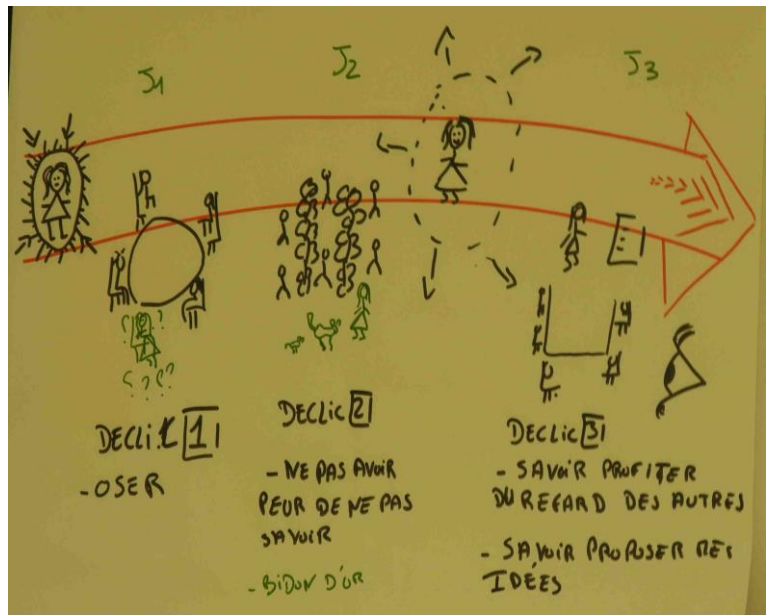 J1
J2
J3
? ? ?
? ? ? ?
DECLIC 1
- OSER
DECLIC 2
- NE PAS AVOIR
PEUR DE NE PAS
SAVOIR
- BIDON D'OR
DECLIC 3
- SAVOIR PROFITER
DU REGARD DES AUTRES
- SAVOIR PROPOSER MES
IDÉES